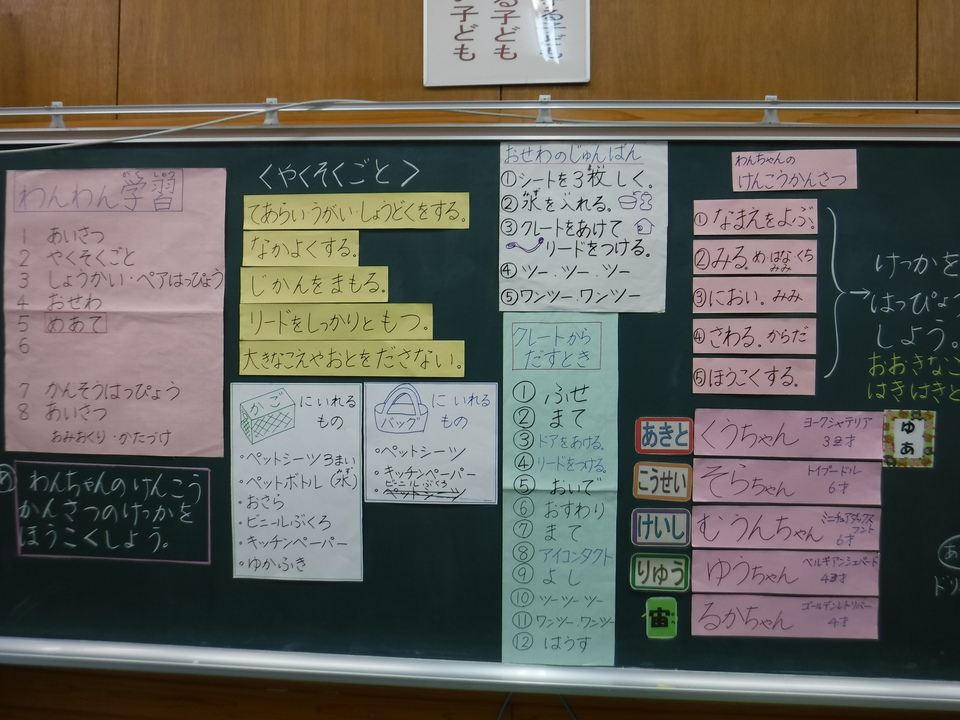 る子ども
子ども
わんわん学習
がくしゅう
1 あいさつ
2 やくそくごと
3 しょうかい・ペアはっぴょう
4 おせわ
5 めあて
6
7 かんそうはっぴょう
8 あいさつ
おみおくり・かたづけ
め
わんちゃんのけんこう
かんさつのけっかを
ほうこくしよう。
〈やくそくごと〉
てあらいうがいしょうどくをする。
なかよくする。
じかんをまもる。
リードをしっかりともつ。
大きなこえやおとをださない。
かごにいれる
もの
・ペットシーツ3まい
・ペットボトル(水)
みず
・おさら
・ビニールぶくろ
・キッチンペーパー
・ゆかふき
バッグにいれる
もの
・ペットシーツ
・キッチンペーパー
ビニールぶくろ
・ペットシーツ
おせわのじゅんばん
①シートを3枚しく。
②水を入れる。
③クレートをあけて
リードをつける。
④ツー.ツー.ツー
⑤ワンツー.ワンツー
クレートから
だすとき
①ふせ
②まて
③ドアをあける。
④リードをつける。
⑤おいで
⑥おすわり
⑦まて
⑧アイコンタクト
⑨よし
⑩ツーツーツー
⑪ワンツー.ワンツー
⑫はうす
わんちゃんの
けんこうかんさつ
①なまえをよぶ。
②みる.め.はな.くち
みみ
③におい.みみ
④さわる.からだ
⑤ほうこくする。
けっかを
はっぴょう
しよう。
おおきなこ
はきはきと
あきと くうちゃん ヨークシャテリア
3才
ゆあ
こうせい そらちゃん トイプードル
6才
けいし むうんちゃん ミニチュアダックス
フント
6才
りゅう ゆうちゃん ベルギアンシェパード
4才
宙 るかちゃん ゴールデンレトリバー
4才
あ
ドリ